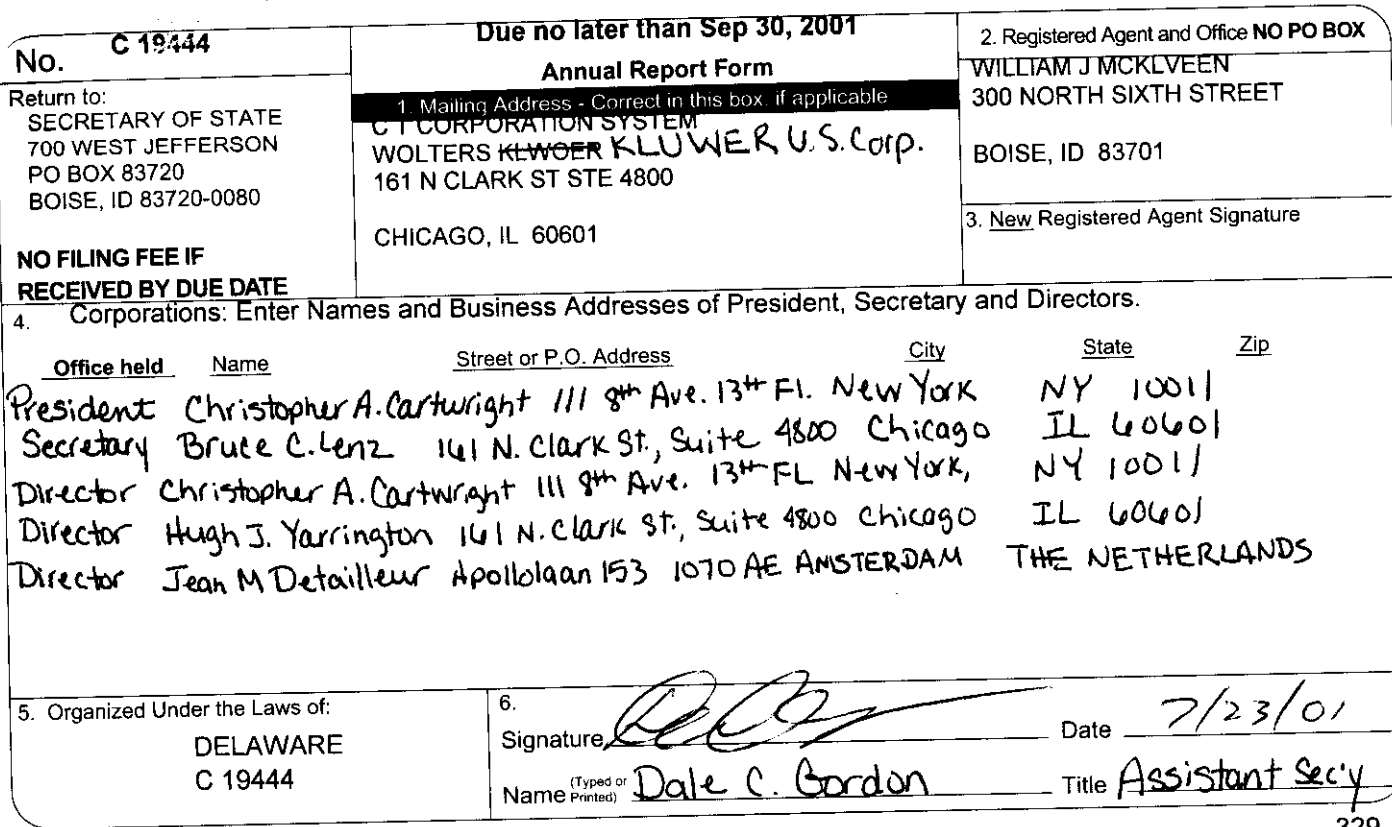 No. C 19444
Return to:
SECRETARY OF STATE
700 WEST JEFFERSON
PO BOX 83720
BOISE, ID 83720-0080
NO FILING FEE IF
RECEIVED BY DUE DATE
Due no later than Sep 30, 2001
Annual Report Form
1. Mailing Address - Correct in this box, if applicable
C T CORPORATION SYSTEM
WOLTERS KLWOER KLUWER U.S. Corp.
161 N CLARK ST STE 4800
CHICAGO, IL 60601
2. Registered Agent and Office NO PO BOX
WILLIAM J MCKLVEEN
300 NORTH SIXTH STREET
BOISE, ID 83701
3. New Registered Agent Signature
4. Corporations: Enter Names and Business Addresses of President, Secretary and Directors.
Office held Name Street or P.O. Address City State Zip
President Christopher A. Cartwright 111 8th Ave. 13th Fl. New York NY 10011
Secretary Bruce C. Lenz 161 N. Clark St., Suite 4800 Chicago IL 60601
Director Christopher A. Cartwright 111 8th Ave. 13th FL New York, NY 10011
Director Hugh J. Yarrington 161 N. Clark St., Suite 4800 Chicago IL 60601
Director Jean M Detailleur Apollolaan 153 1070 AE AMSTERDAM THE NETHERLANDS
5. Organized Under the Laws of:
DELAWARE
C 19444
6.
Signature Date 7/23/01
Name (Typed or Printed) Dale C. Gordon Title Assistant Sec'y
329